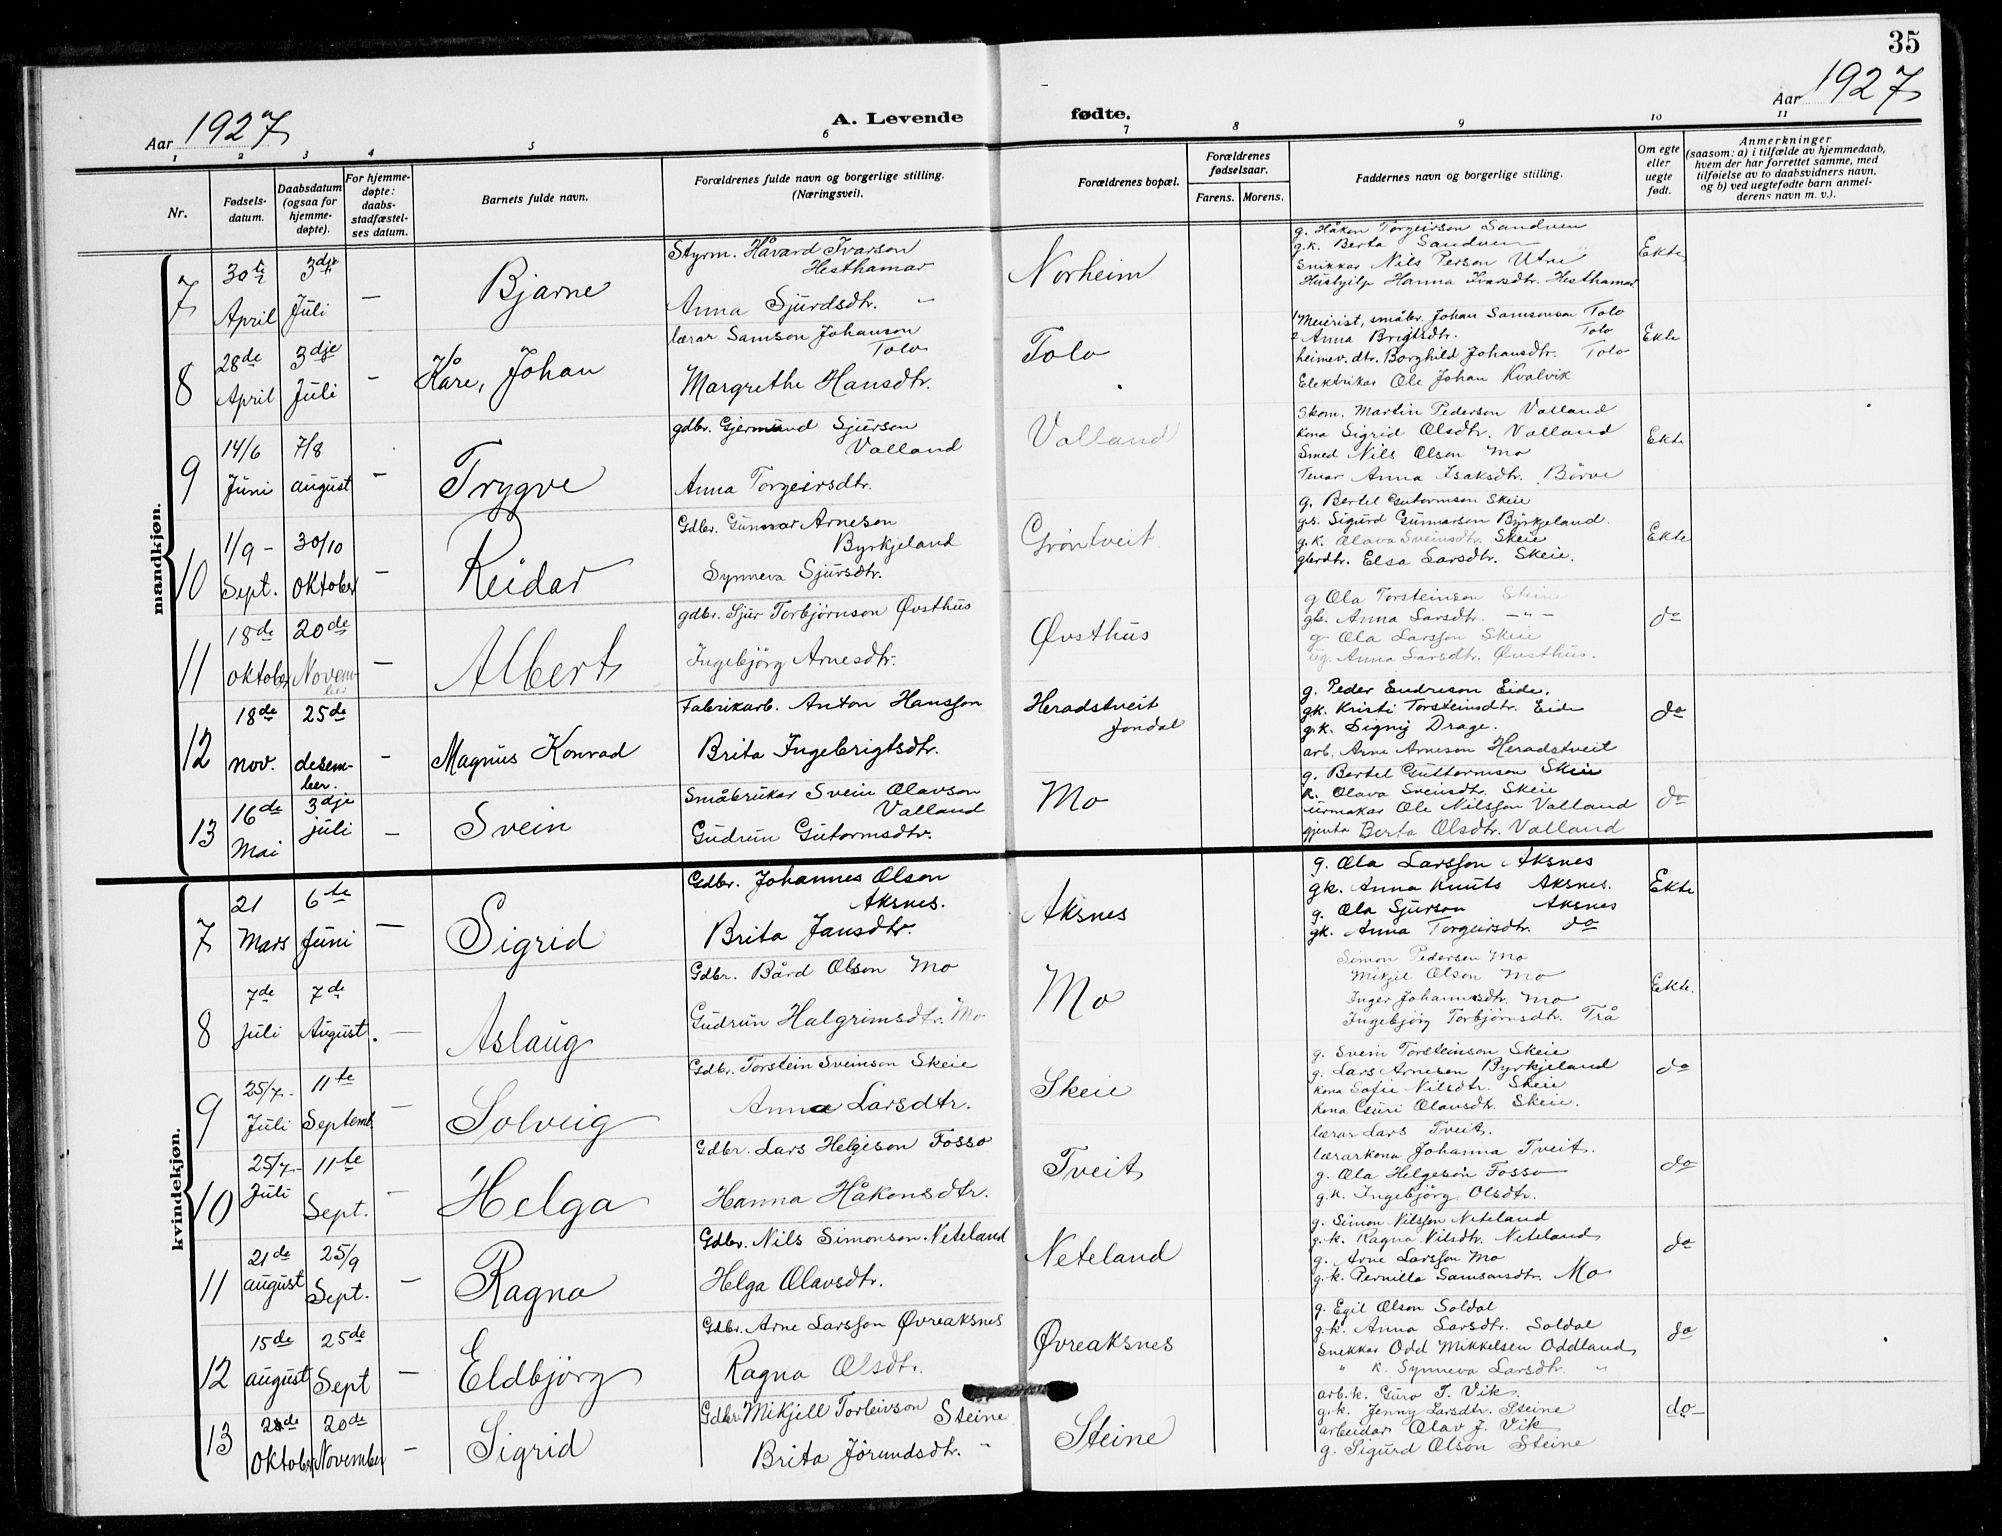 35
Aar 1927
A. Levende
fødte.
Aar 1927
1 2 3 4 5 6 7 8 9 10 11
Nr.
Fødsels-
datum.
Daabsdatum
(ogsaa for
hjemme-
døpte).
For hjemme-
døpte:
daabs-
stadfæstel-
ses datum.
Barnets fulde navn.
Forældrenes fulde navn og borgerlige stilling.
(Næringsvei).
Forældrenes bopæl.
Forældrenes
fødselsaar.
Farens. Morens.
Faddernes navn og borgerlige stilling.
Om egte
eller
uegte
født.
Anmerkninger
(saasom: a) i tilfælde av hjemmedaab,
hvem der har forrettet samme, med
tilføielse av to daabsvidners navn,
og b) ved uegtefødte barn anmel-
derens navn m. v.).
mandkjøn.
7 30te April 3dje Juli — Bjarne
Styrm. Håvard Ivarson
Hesthamar
Anna Sjurdsdtr. "
Norheim
g. Håkon Torgeirson Sandven
g.k. Berta Sandven
Snikkar Nils Person Utne
Hushjelp Hanna Ivarsdtr. Hesthamar
Ekte
8 28de April 3dje Juli - Kåre, Johan
lærar Samson Johanson
Tolo
Margrethe Hansdtr.
Tolo
1 Meierist, småbr. Johan Samsonson Tolo
2 Anna Brigtsdtr. Tolo
heimev. dtr. Borghild Johansdtr. Tolo
Elektrikar Ole Johan Kvalvik
Ekte
9 14/6 Juni 7/8 august - Trygve
gdbr. Gjermund Sjurson
Valland
Anna Torgeirsdtr.
Valland
Skom. Martin Pederson Valland
Kona Sigrid Olsdtr. Valland
Smed Nils Olson Mo
Tenar Anna Isaksdtr. Børve
Ekte
10 1/9 - Sept. 30/10 oktober - Reidar
Gdbr. Gunnar Arneson
Byrkjeland
Synneva Sjursdtr.
Grøntveit
g. Bertel Gutormson Skeie
gs. Sigurd Gunnarson Byrkjeland.
g.k. Olava Sveinsdtr. Skeie
gbrdtr. Elsa Larsdtr. Skeie.
Ekte
11 18de oktober 20de November — Albert
gdbr. Sjur Torbjørnson Øvsthus
Ingebjörg Arnesdtr.
Øvsthus
g Ola Torsteinson Steine
gk. Anna Larsdtr. — " —
g. Ola Larsson Skeie
ug. Anna Larsdtr. Øvsthus.
do
12 18de nov. 25de desember. - Magnus Konrad
Fabrikarb. Anton Hansson
Brita Ingebrigtsdtr.
Heradstveit
Jondal
g. Peder Endreson Eide.
gk. Kristi Torsteinsdtr. Eide
g.k. Signy Drage.
arb. Arne Arneson Heradstveit
do
13 16de Mai 3dje juli - Svein
Småbrukar Svein Olavson
Valland
Gudrun Gutormsdtr.
Mo
g. Bertel Guttormson Skeie
k. Olava Sveinsdtr. Skeie
urmakar Ole Nilsson Valland
gjenta Berta Olsdtr. Valland
do
kvindekjøn.
7 21 Mars 6te Juni — Sigrid
Gdbr. Johannes Olson
Aksnes.
Brita Jansdtr.
Aksnes
g. Ola Larsson Aksnes
gk. Anna Knuts Aksnes.
g. Ola Sjurson Aksnes
gk. Anna Torgeirsdtr. do
Ekte
8 7de Juli 7de August. — Aslaug
Gdbr. Bård Olson Mo
Gudrun Halgrimsdtr. Mo
Mo
Simon Pedersen Mo
Mikjel Olson Mo
Inger Johannesdtr. Mo
Ingebjörg Torbjørnsdtr. Trå
Ekte.
9 25/7- Juli 11te Septemb. — Solveig
Gdbr. Torstein Sveinson Skeie
Anna Larsdtr.
Skeie
g. Svein Torsteinson Skeie
g. Lars Arneson Byrkjeland
Kona Sofie Nilsdtr. Skeie
Kona Guri Olavsdtr. Skeie.
do
10 25/7- Juli 11te Sept. - Helga
Gdbr. Lars Helgeson Fosso
Hanna Håkonsdtr.
Tveit
lærar Lars Tveit.
lærarkona Johanna Tveit.
g. Ola Helgeson Fosso
g.k. Ingebjörg Olsdtr.
do
11 21de august 25/9 Sept. - Ragna
Gdbr. Nils Simonson Neteland
Helga Olavsdtr.
Neteland
g. Simon Nilsson Neteland
g.k. Ragna Nilsdtr. Neteland
g. Arne Larsson Mo
g.k. Pernilla Samsonsdtr. Mo
do
12 15de august 25de Sept - Eldbjörg
Gdbr. Arne Larsson Øvreaksnes
Ragna Olsdtr.
Øvreaksnes
g. Egil Olson Soldal
g.k. Anna Larsdtr. Soldal
Snekkar Odd Mikkelsen Oddland
" k. Synneva Larsdtr. "
do
13 Oktober 20de November - Sigrid
Gdbr. Mikjell Torleivson Steine
Brita Jörundsdtr. "
Steine
arb.k. Guro T. Vik
g.k. Jenny Larsdtr. Steine
arbeidar Olav J. Vik
g. Sigurd Olson Steine
do